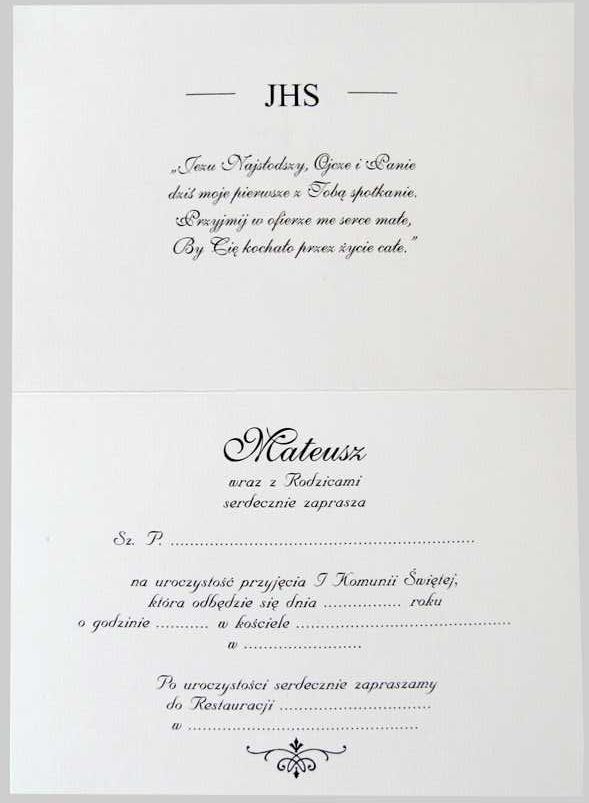 JHS
„Jezu Najsłodszy, Ojcze i Panie
dziś moje pierwsze z Tobą spotkanie.
Przyjmij w ofierze me serce małe,
By Cię kochało przez życie całe.”
Mateusz
wraz z Rodzicami
serdecznie zaprasza
Sz. P. ..............................................................
na uroczystość przyjęcia I Komunii Świętej,
która odbędzie się dnia ................ roku
o godzinie ........... w kościele ............................................
w ........................
Po uroczystości serdecznie zapraszamy
do Restauracji ...............................
w ...............................................